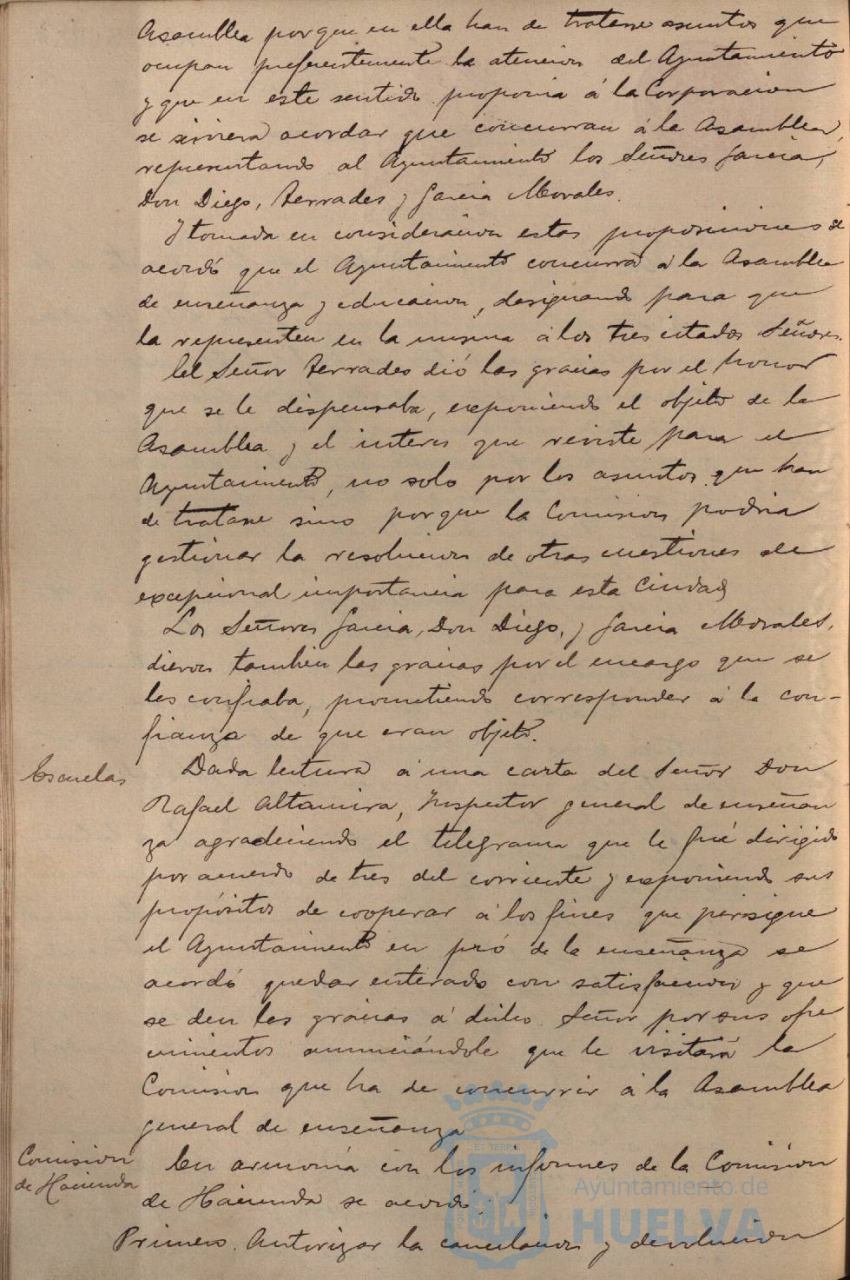 Asamblea porque en ella han de tratarse asuntos que
ocupan preferentemente la atencion del Ayuntamiento
y que en este sentido proponia á la Corporacion
se sirviera acordar que concurran á la Asamblea,
representando al Ayuntamiento los Señores Garcia,
Don Diego, Terrades y Garcia Morales.
Y tomada en consideracion estas proposiciones se
acordó que el Ayuntamiento concurra á la Asamblea
de enseñanza y educacion, designando para que
la representen en la misma á los tres citados Señores.
El Señor Terrades dió las gracias por el honor
que se le dispensaba, exponiendo el objeto de la
Asamblea y el interes que reviste para el
Ayuntamiento, no solo por los asuntos que han
de tratarse sino porque la Comision podria
gestionar la resolucion de otras cuestiones de
excepcional importancia para esta Ciudad
Los Señores Garcia, Don Diego, y Garcia Morales,
dieron tambien las gracias por el encargo que se
les confiaba, prometiendo corresponder á la con-
fianza de que eran objeto.
Escuelas
Dada lectura á una carta del Señor Don
Rafael Altamira, Inspector general de enseñan
za agradeciendo el telegrama que le fué dirigido
por acuerdo de tres del corriente y exponiendo sus
propósitos de cooperar á los fines que persigue
el Ayuntamiento en pró de la enseñanza se
acordó quedar enterado con satisfaccion y que
se den las gracias á dicho Señor por sus ofre
cimientos anunciándole que le visitará la
Comision que ha de concurrir á la Asamblea
general de enseñanza
Comision
de Hacienda
En armonía con los informes de la Comision
de Hacienda se acordó.
Primero. Autorizar la cancelacion y devolucion
Ayuntamiento de
HUELVA